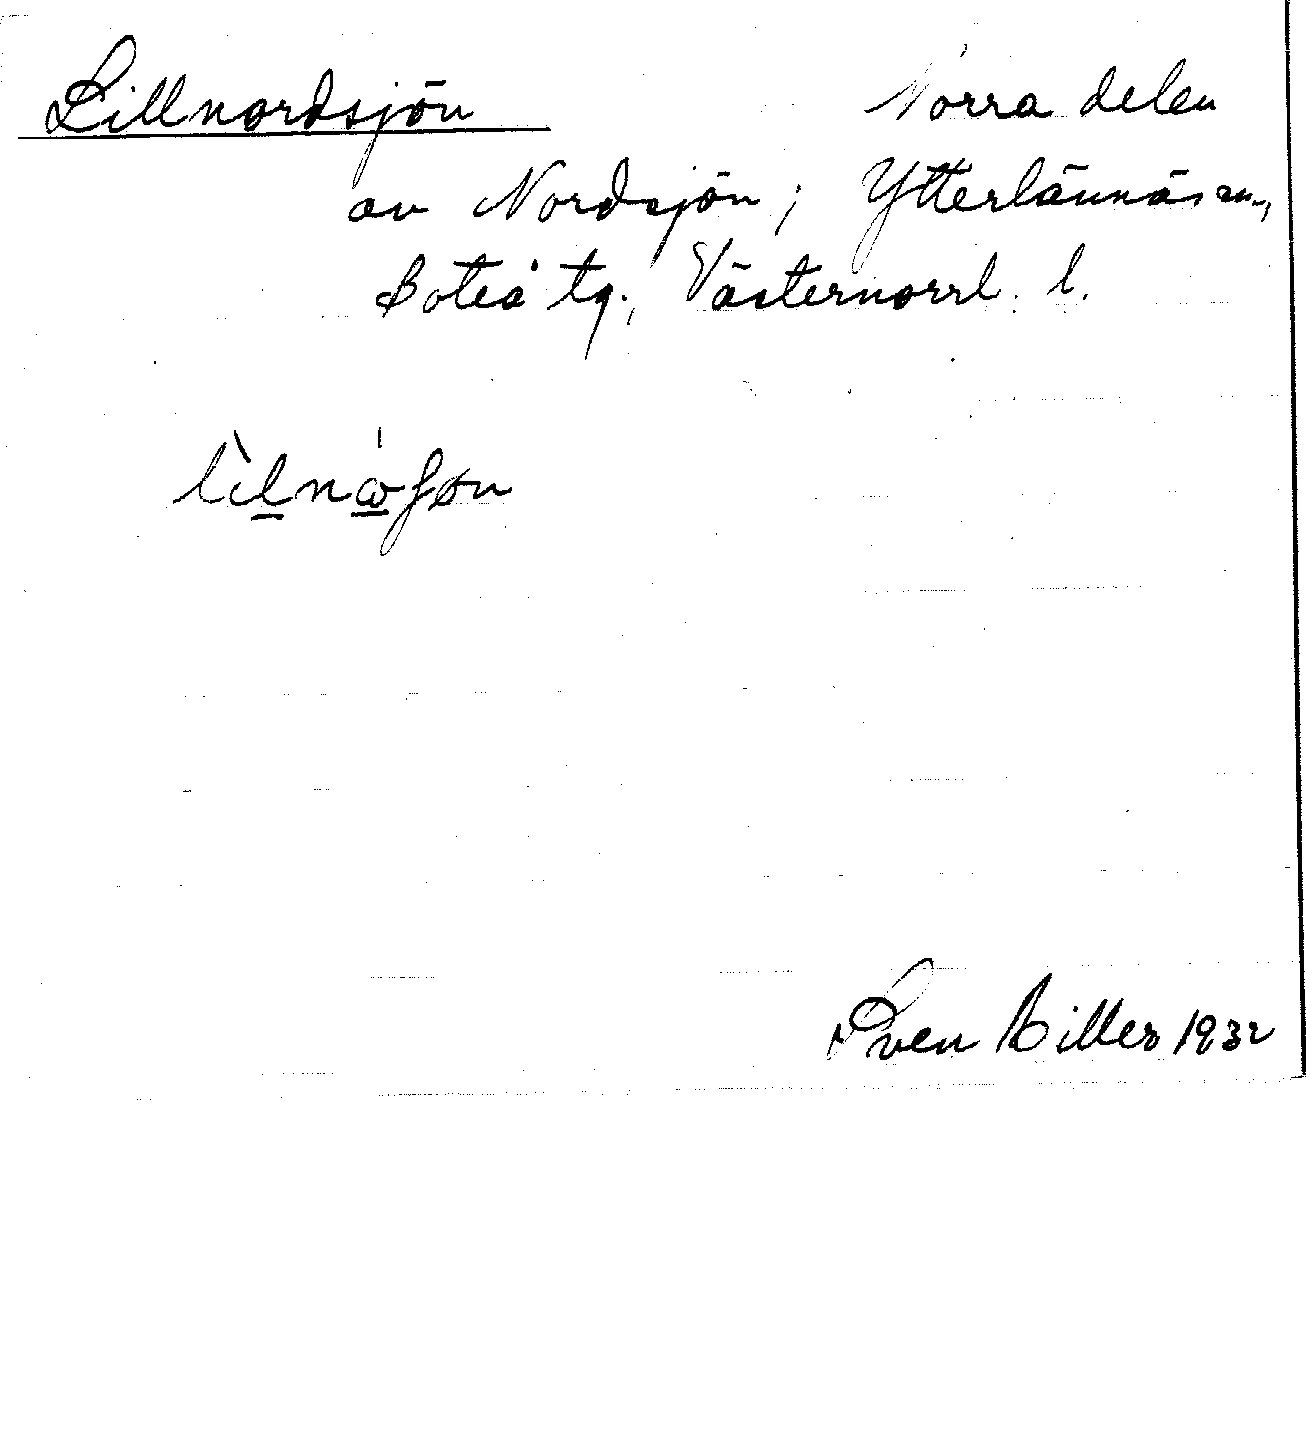 Lillnordsjön Norra delen
av Nordsjön; Ytterlännäs sn.,
Boteå tg., Västernorrl. l.
Sven Hiller 1932